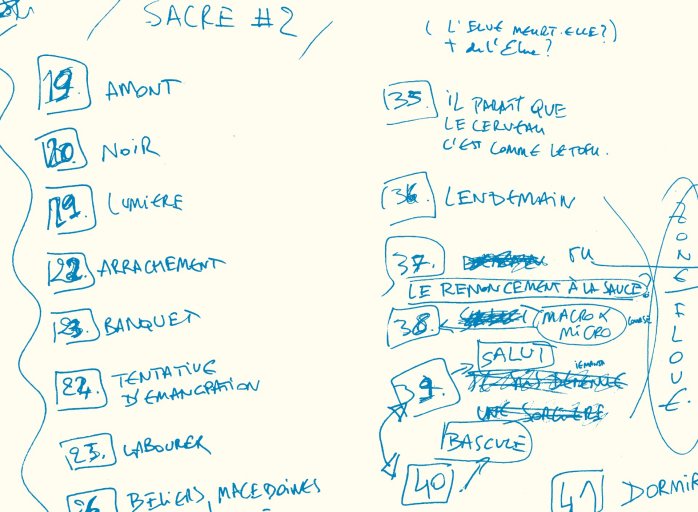 SACRE #2
19. AMONT
20. NOIR
21. LUMIERE
22. ARRACHEMENT
23. BANQUET
24. TENTATIVE
D'EMANCIPATION
25. LABOURER
26. BELIERS, MACEDOINES
( L'ELUE MEURT-ELLE?)
+ de l'Elue?
35. IL PARAÎT QUE
LE CERVEAU
C'EST COMME LE TOFU.
36. LENDEMAIN
37.
LE RENONCEMENT À LA SAUCE?
38. MACRO &
MICRO
SALUT
39.
UNE SORCIERE
BASCULE
40.
41 DORMIR
ZONE FLOUE